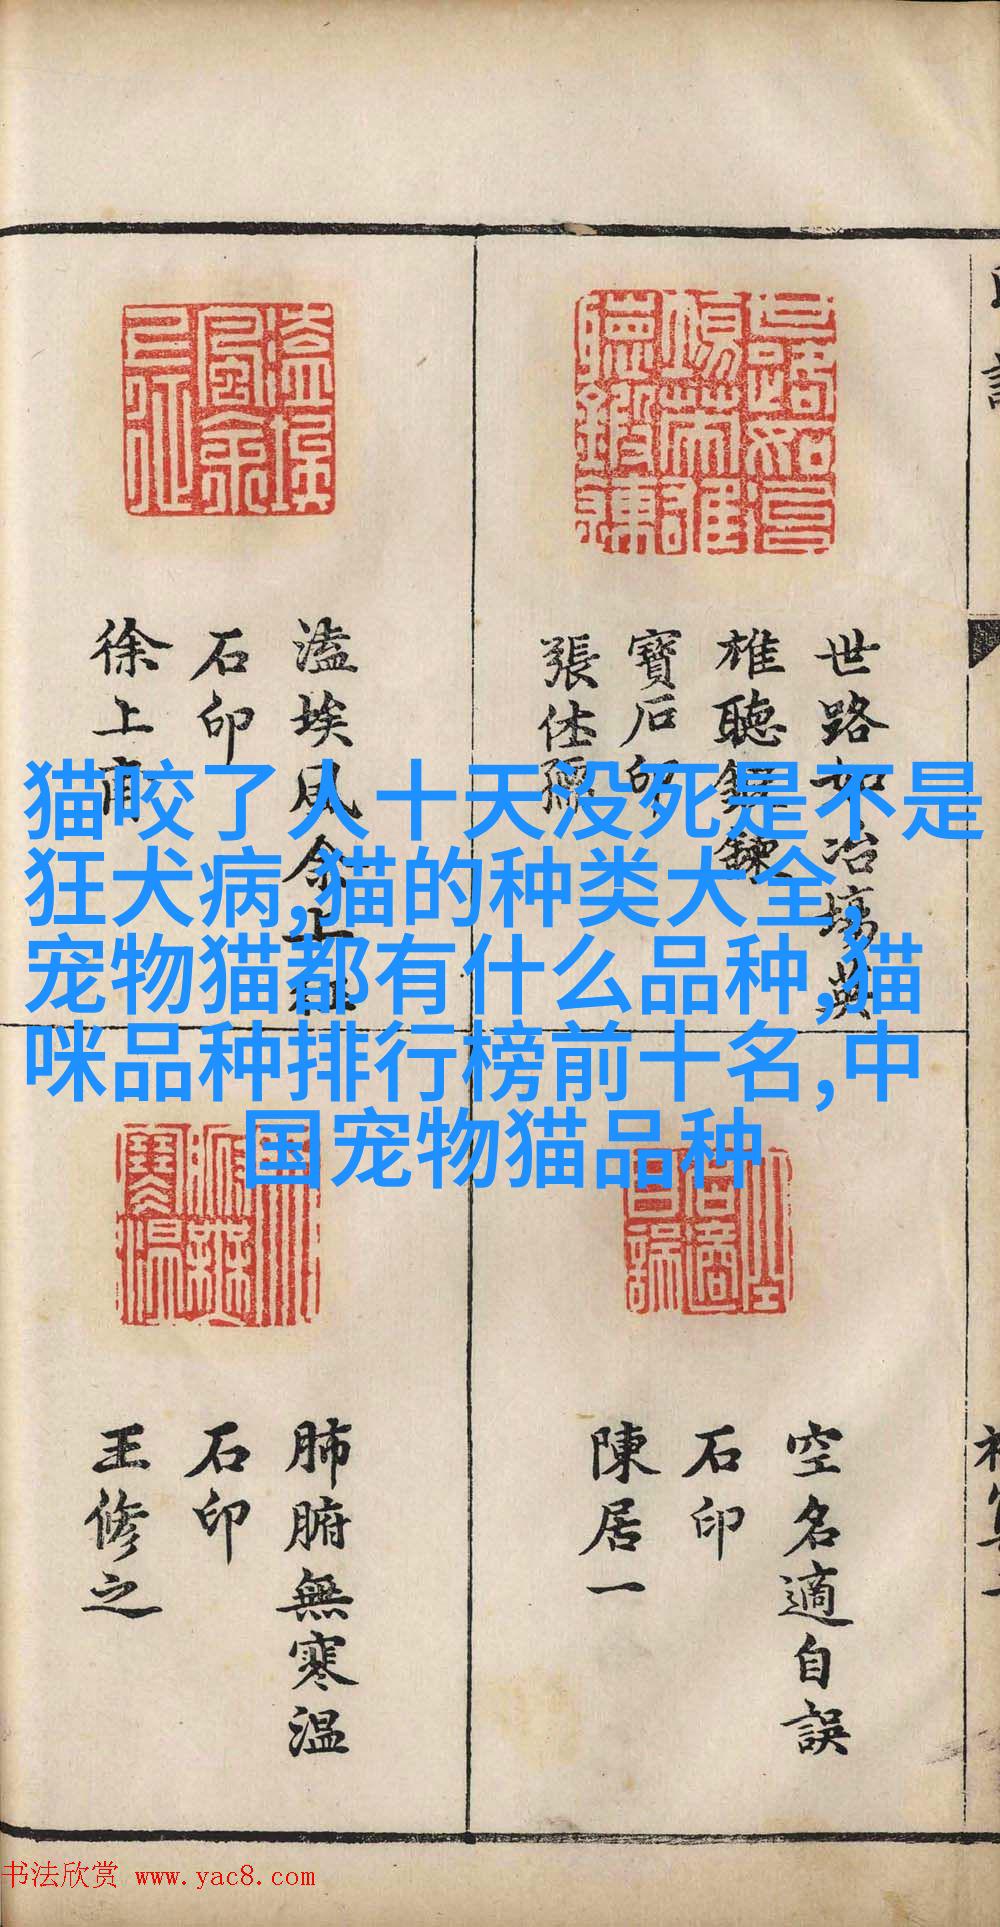 猫咬了人十天没死是不是
狂犬病,猫的种类大全,
宠物猫都有什么品种,猫
咪品种排行榜前十名,中
国宠物猫品种
世路如冶塙英
雄聽鍛鍊
寶石印
張仕孺
溘埃风余上征
石印
徐上甫
空名適自誤
石印
陳居一
肺腑無寒溫
石印
王修之
书法欣赏 www.yac8.com